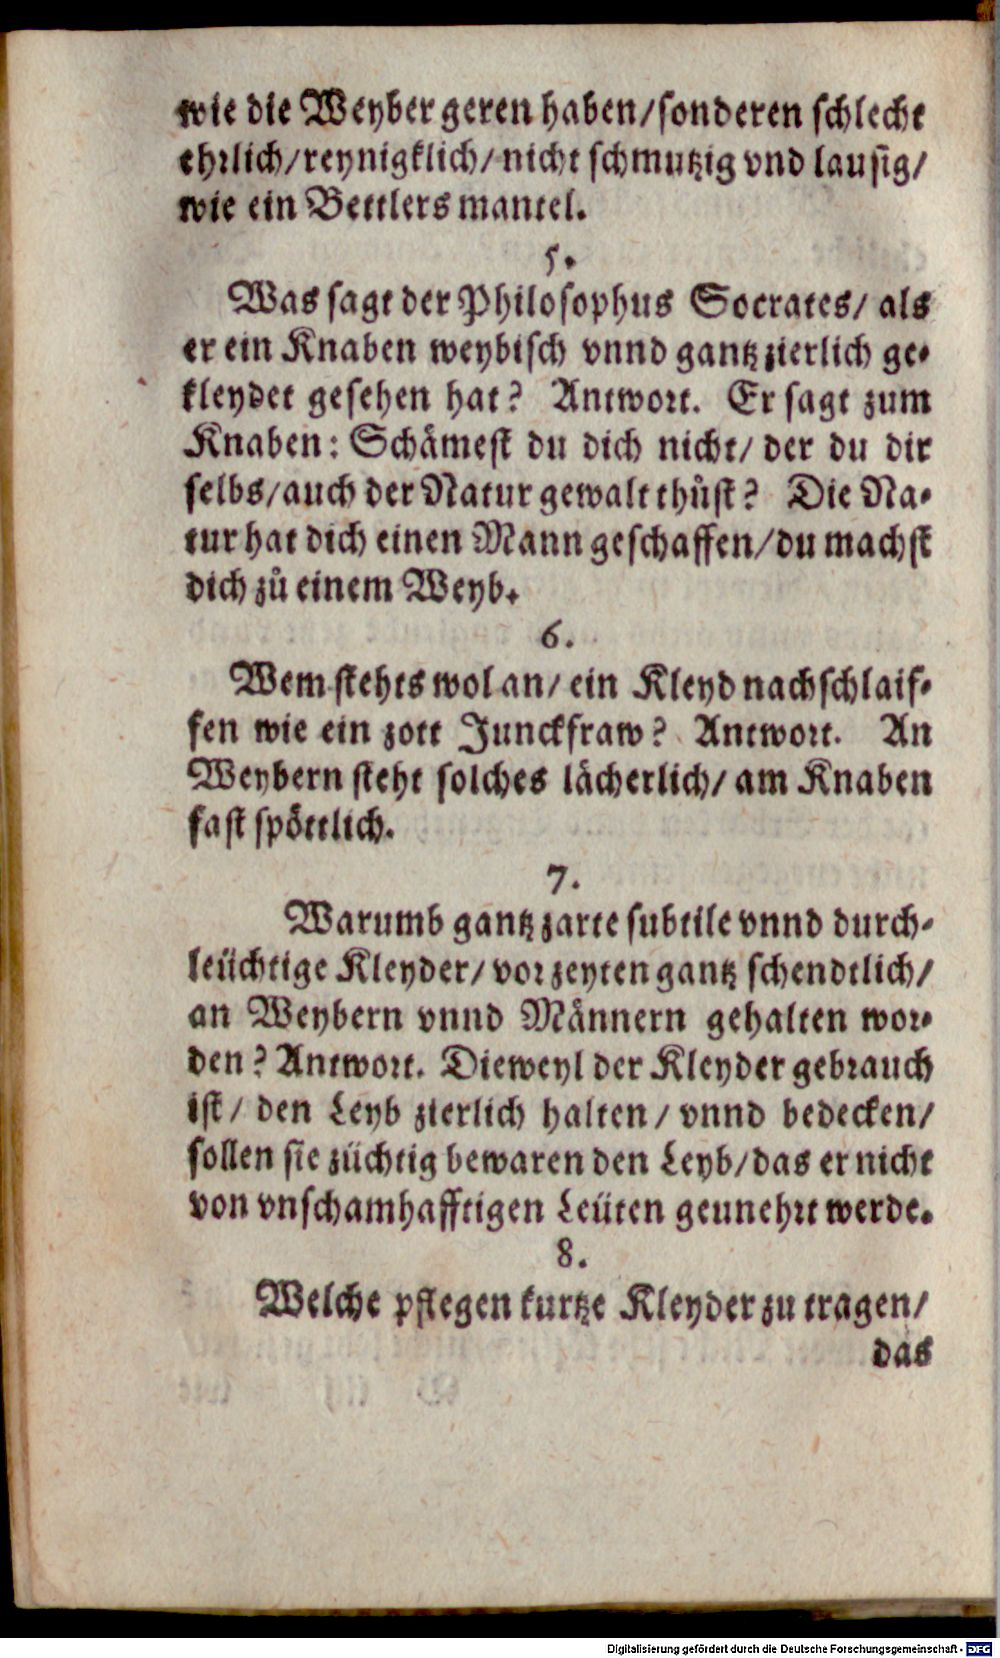 wie die Weyber geren haben/sonderen schlecht
ehrlich/reynigklich/nicht schmutzig vnd lausig/
wie ein Bettlers mantel.
5.
Was sagt der Philosophus Socrates/ als
er ein Knaben weybisch vnnd gantz zierlich ge-
kleydet gesehen hat? Antwort. Er sagt zum
Knaben: Schämest du dich nicht/ der du dir
selbs/auch der Natur gewalt thůst? Die Na-
tur hat dich einen Mann geschaffen/du machst
dich zů einem Weyb.
6.
Wem stehts wol an/ ein Kleyd nachschlaif-
fen wie ein zott Junckfraw? Antwort. An
Weybern steht solches lächerlich/ am Knaben
fast spöttlich.
7.
Warumb gantz zarte subtile vnnd durch-
leüchtige Kleyder/ vor zeyten gantz schendtlich/
an Weybern vnnd Männern gehalten wor-
den? Antwort. Dieweyl der Kleyder gebrauch
ist/ den Leyb zierlich halten/ vnnd bedecken/
sollen sie züchtig bewaren den Leyb/das er nicht
von vnschamhafftigen Leüten geunehrt werde.
8.
Welche pflegen kurtze Kleyder zu tragen/
das
Digitalisierung gefördert durch die Deutsche Forschungsgemeinschaft - DFG